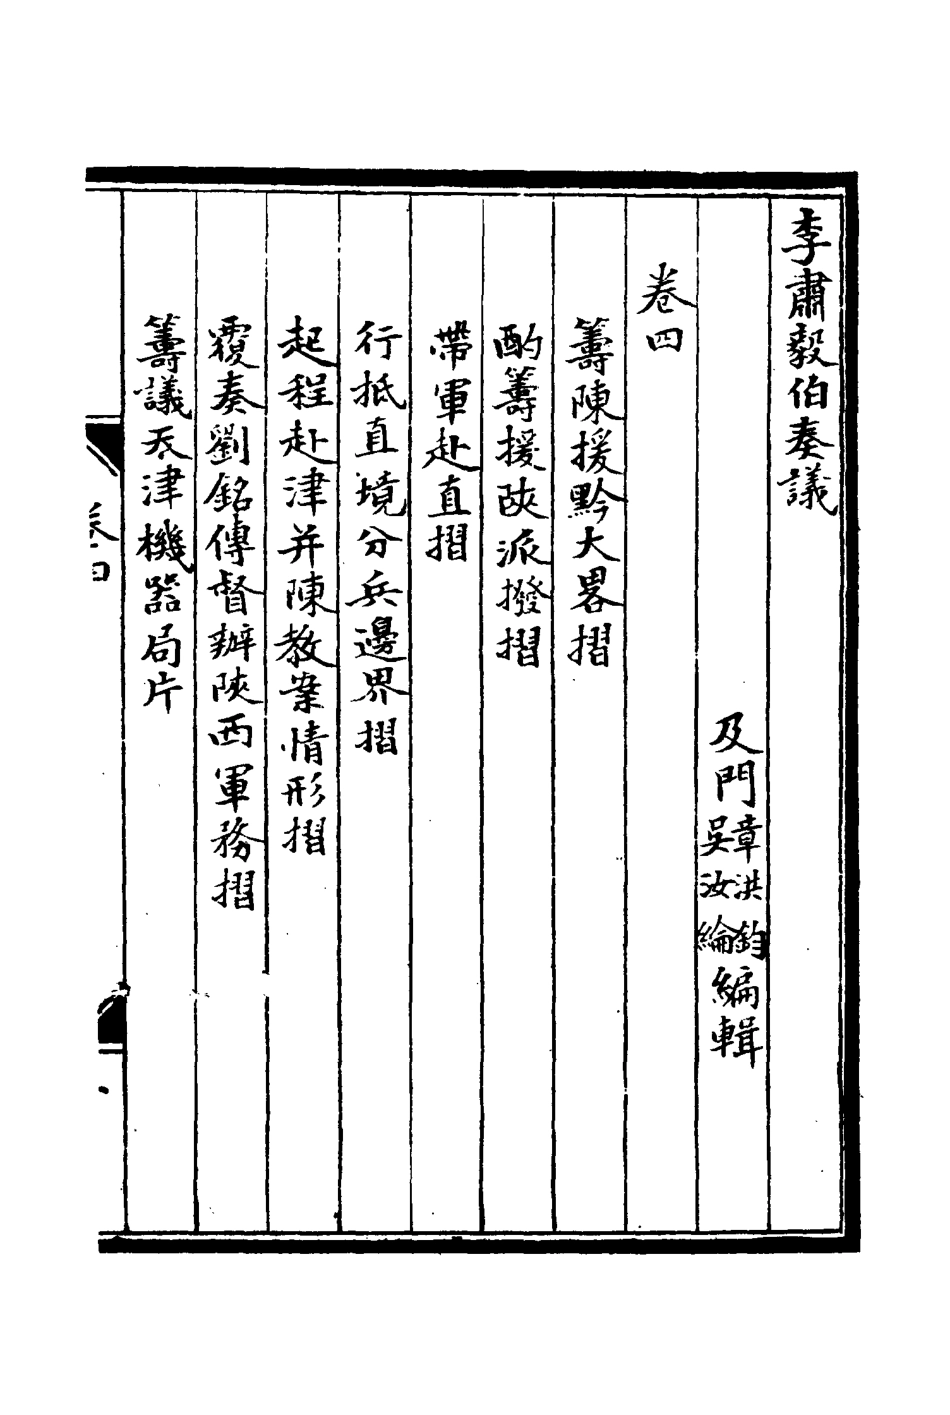 李肅毅伯奏議
及門章洪鈞吳汝綸編輯
卷四
籌陳援黔大畧摺
酌籌援陝派撥摺
帶軍赴直摺
行抵直境分兵邊界摺
起程赴津并陳教案情形摺
覆奏劉銘傳督辦陝西軍務摺
籌議天津機器局片
卷四